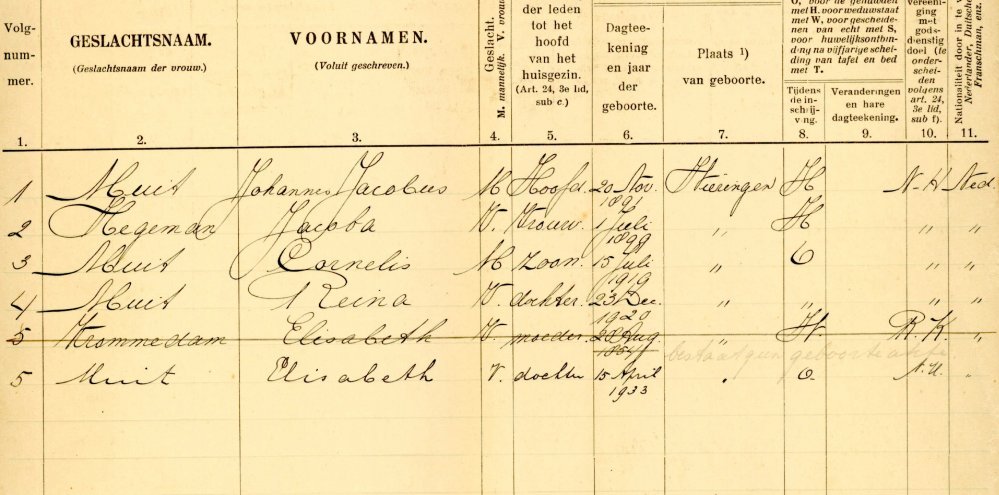 Volg-
num-
mer.
GESLACHTSNAAM.
(Geslachtsnaam der vrouw.)
VOORNAMEN.
(Voluit geschreven.)
Geslacht.
M. mannelijk. V. vrouw
der leden
tot het
hoofd
van het
huisgezin.
(Art. 24, 3e lid,
sub c.)
Dagtee-
kening
en jaar
der
geboorte.
Plaats 1)
van geboorte.
O, voor de gehuwden
met H. voor weduwstaat
met W, voor gescheide-
nen van echt met S,
voor huwelijksontbin-
ding na vijfjarige schei-
ding van tafel en bed
met T.
Tijdens
de in-
schrij-
ving.
Veranderingen
en hare
dagteekening.
vereeni-
ging
met
gods-
dienstig
doel (te
onder-
schei-
den
volgens
art. 24,
3e lid,
sub f).
Nationaliteit door in te v
Nederlander, Duitsche
Franschman, enz.
1. 2. 3. 4. 5. 6. 7. 8. 9. 10. 11.
1 Muit Johannes Jacobus M Hoofd. 20 Nov. 1891 Wieringen H N-H Ned.
2 Hegeman Jacoba V. Vrouw. 1 Juli 1899 " H " "
3 Muit Cornelis M Zoon. 15 Juli 1919 " O " "
4 Muit Reina V. dochter. 23 Dec. 1920 " " " "
5 Krommedam Elisabeth V. moeder. 28 Aug. " H. R.K. "
bestaat geen geboorteakte
5 Muit Elisabeth V. dochter 15 April 1933 " O. N.H. "